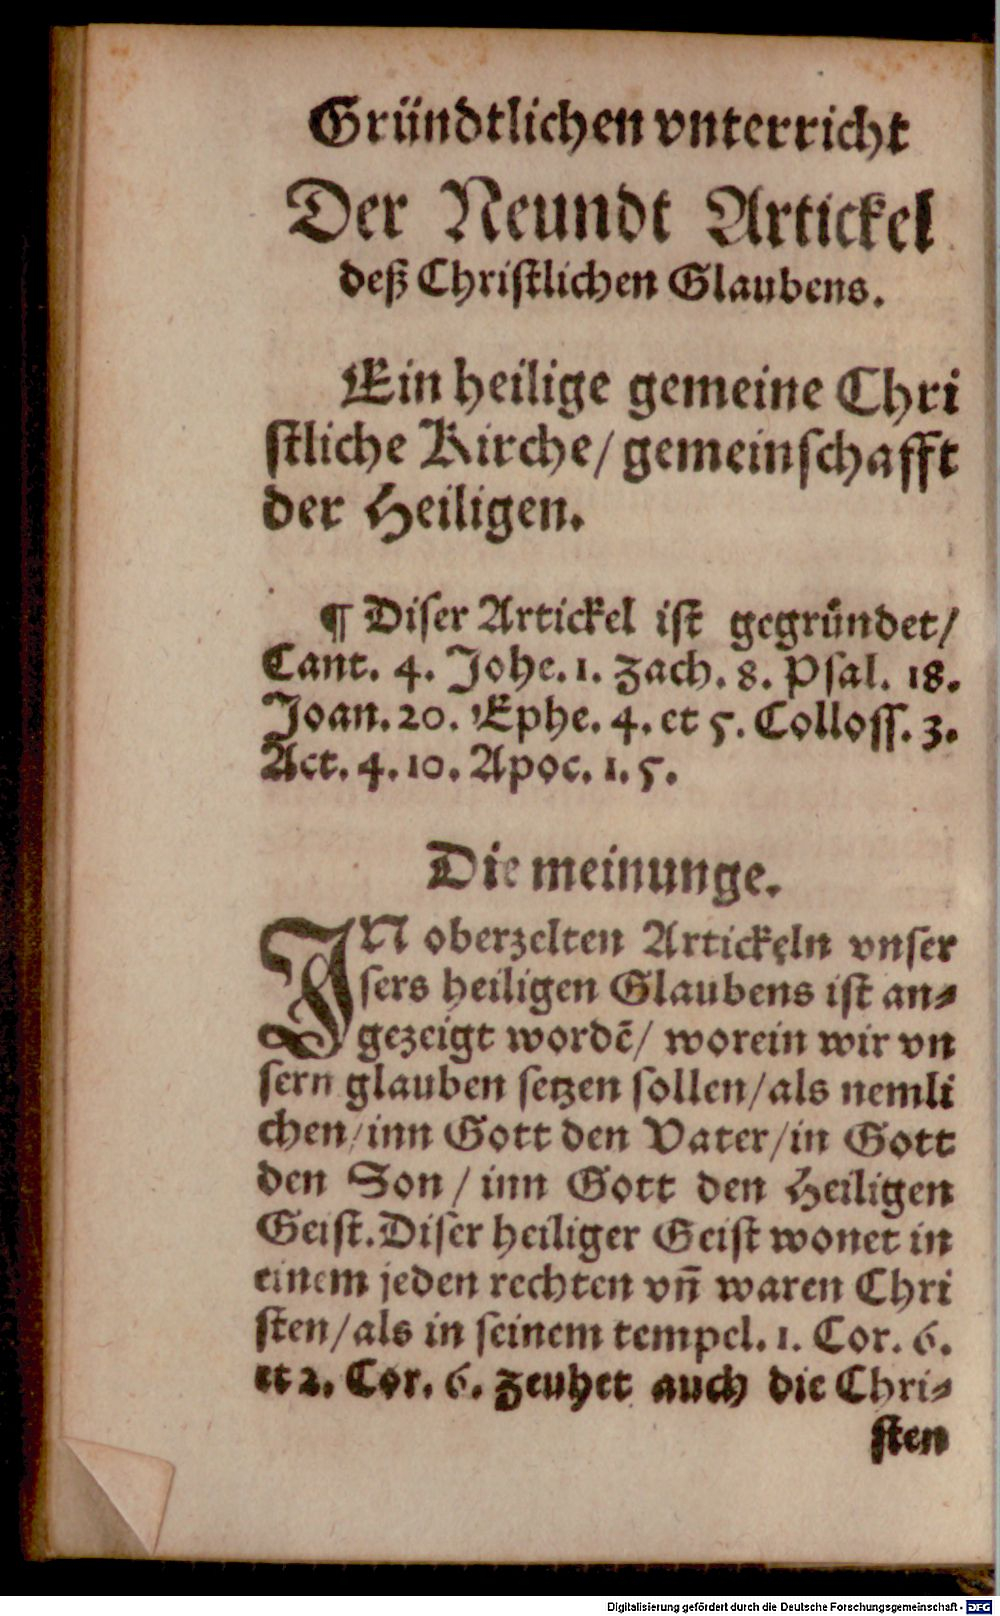 Gründtlichen vnterricht
Der Neundt Artickel
deß Christlichen Glaubens.
Ein heilige gemeine Chri
stliche Kirche/ gemeinschafft
der Heiligen.
¶ Diser Artickel ist gegründet/
Cant. 4. Johe. 1. Zach. 8. Psal. 18.
Joan. 20. Ephe. 4. et 5. Colloss. 3.
Act. 4. 10. Apoc. 1. 5.
Die meinunge.
IN oberzelten Artickeln vnser
sers heiligen Glaubens ist an⸗
gezeigt wordē/ worein wir vn
sern glauben setzen sollen/als nemli
chen/inn Gott den Vater/in Gott
den Son / inn Gott den Heiligen
Geist. Diser heiliger Geist wonet in
einem jeden rechten vñ waren Chri
sten/als in seinem tempel. 1. Cor. 6.
et 2. Cor. 6. Zeuhet auch die Chri⸗
sten
Digitalisierung gefördert durch die Deutsche Forschungsgemeinschaft - DFG